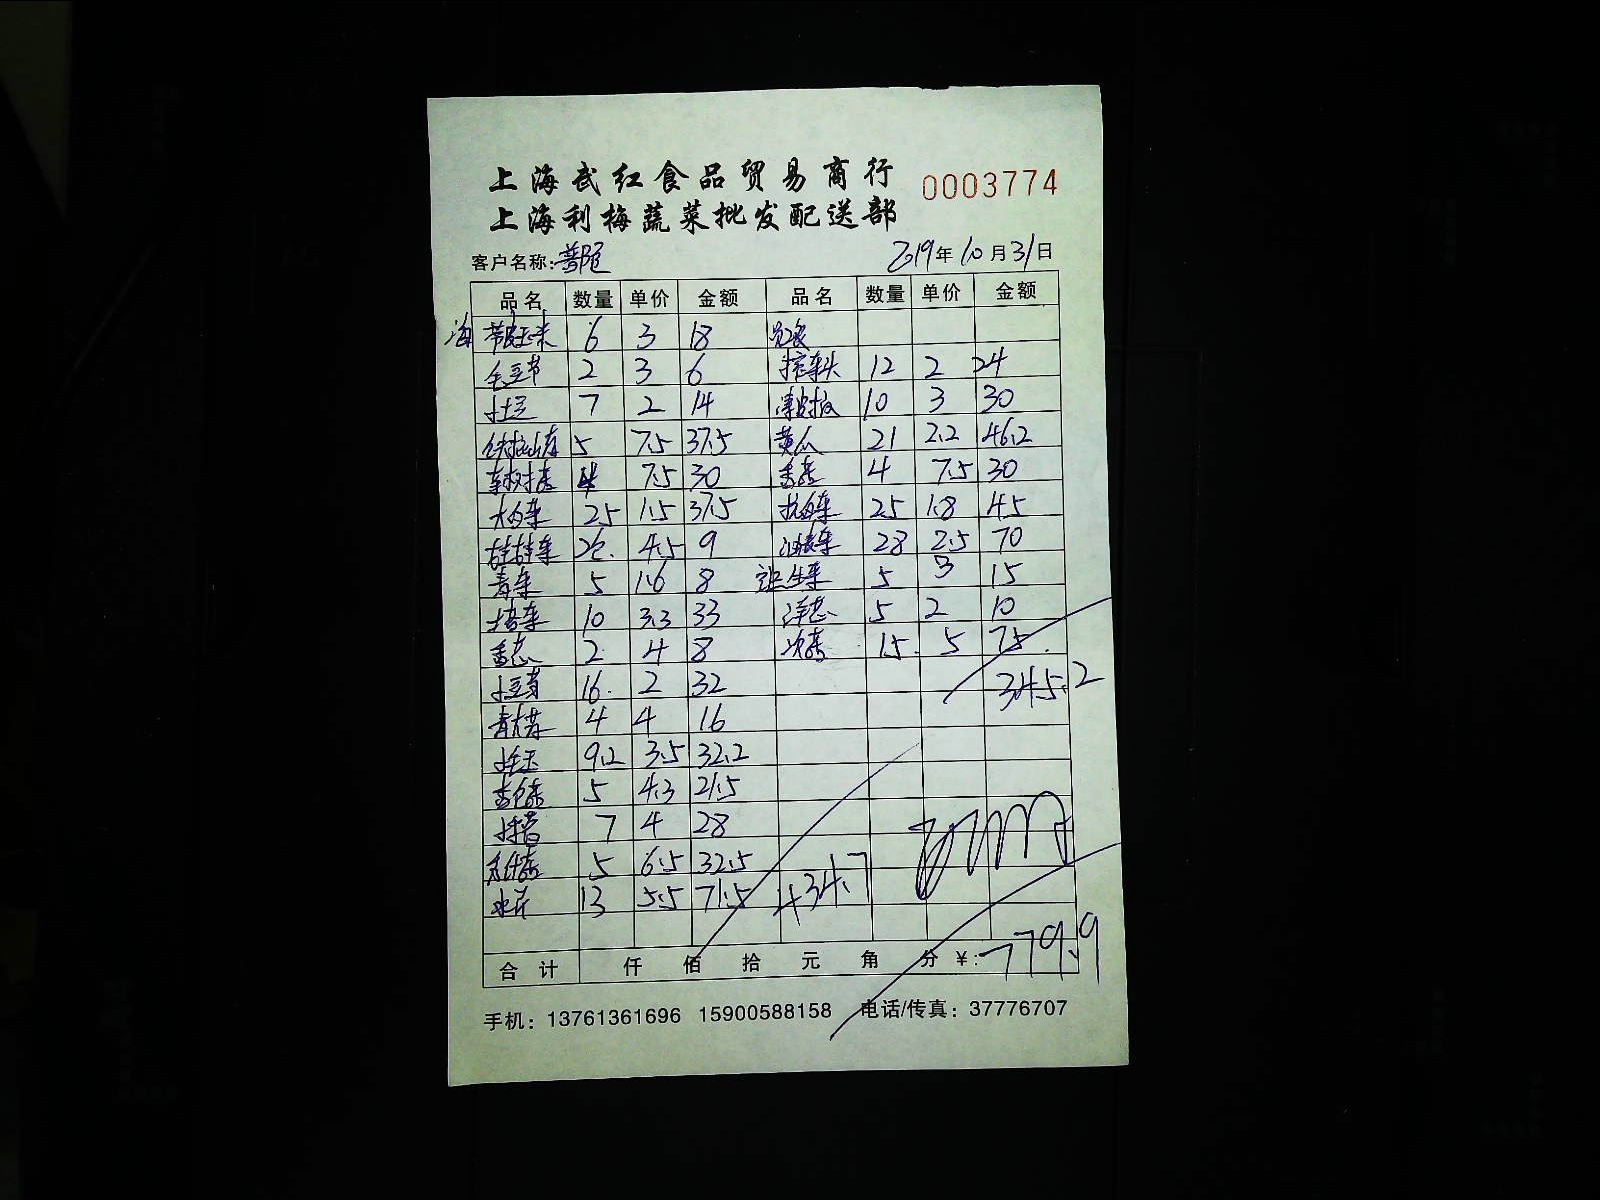 上海武红食品贸易商行
0003774
上海利梅蔬菜批发配送部
客户名称:
2019年10月31日
品名 数量 单价 金额 品名 数量 单价 金额
带皮玉米 6 3 18
毛豆节 2 3 6 12 2 24
土豆 7 2 14 10 3 30
铁棍山药 5 7.5 37.5 黄瓜 21 2.2 46.2
茶树菇 4 7.5 30 香菇 4 7.5 30
大白菜 25 1.5 37.5 25 1.8 45
娃娃菜 2 4.5 9 油麦菜 28 2.5 70
青菜 5 1.6 8 生菜 5 3 15
10 3.3 33 洋葱 5 2 10
香葱 2 4 8 15 5 75
土豆 16 2 32 345.2
青大 4 4 16
9.2 3.5 32.2
5 4.3 21.5
7 4 28
5 6.5 32.5
13 5.5 71.5 434.7
合计 仟 佰 拾 元 角 分 ¥: 779.9
手机：13761361696 15900588158 电话/传真：37776707